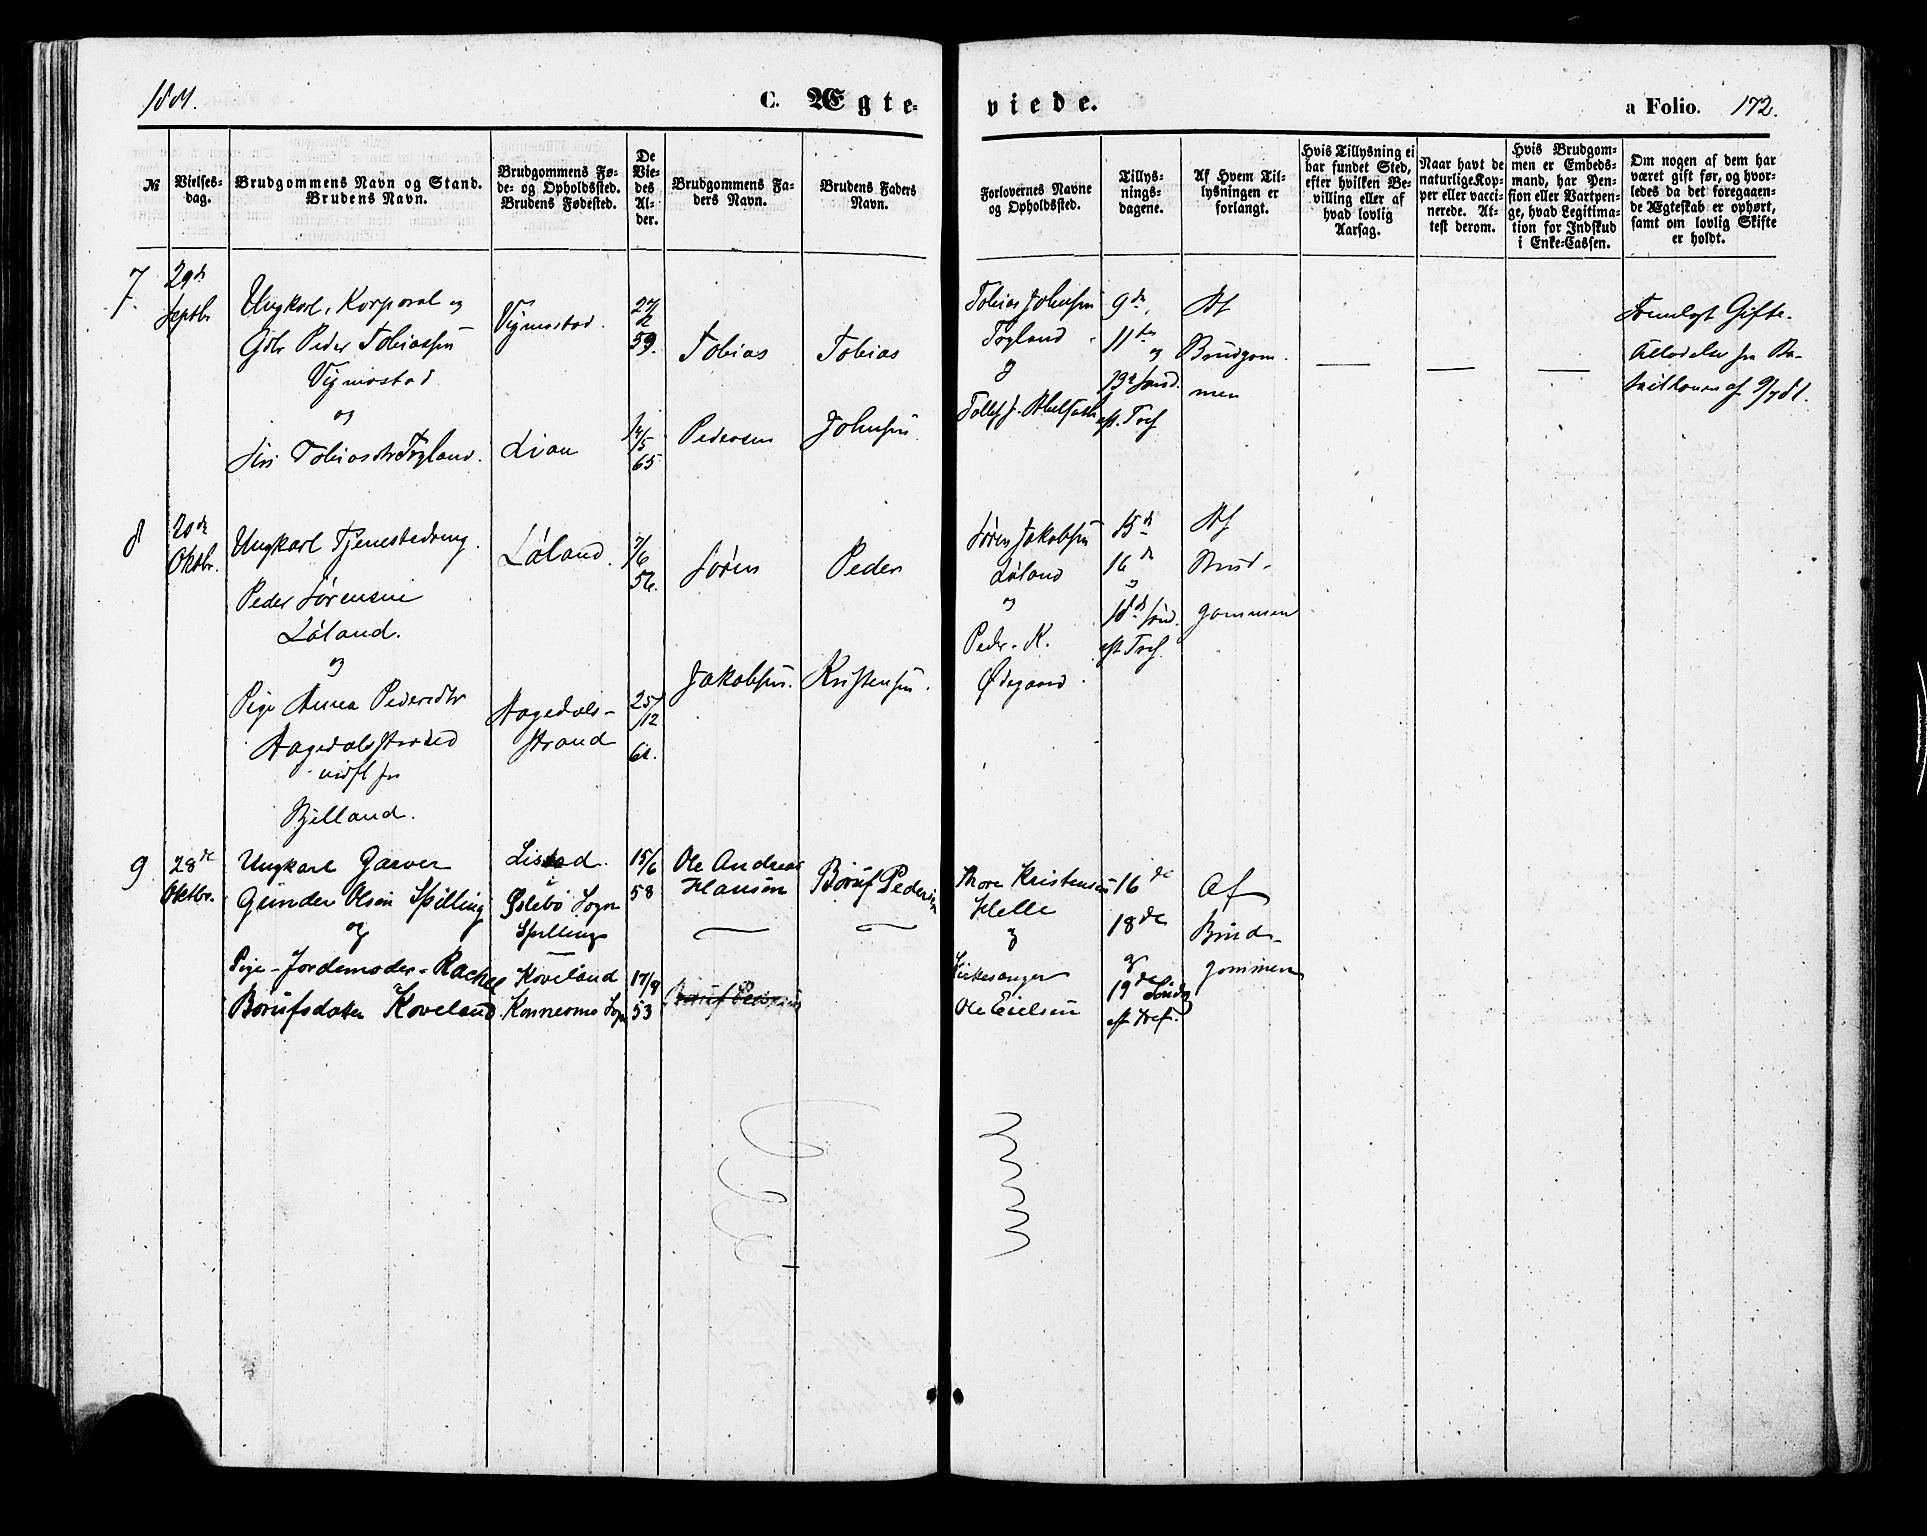 1881.
C. Ægte-
viede.
a Folio. 172.
№
Vielses-
dag.
Brudgommens Navn og Stand.
Brudens Navn.
Brudgommens Fø-
de- og Opholdssted.
Brudens Fødested.
De
Vie-
des
Al-
der.
Brudgommens Fa-
ders Navn.
Brudens Faders
Navn.
Forlovernes Navne
og Opholdssted.
Tillys-
nings-
dagene.
Af Hvem Til-
lysningen er
forlangt.
Hvis Tillysning ei
har fundet Sted,
efter hvilken Be-
villing eller af
hvad lovlig
Aarsag.
Naar havt de
naturlige Kop-
per eller vacci-
nerede. At-
test derom.
Hvis Brudgom-
men er Embeds-
mand, har Pen-
sion eller Vartpen-
ge, hvad Legitima-
tion for Indskud
i Enke-Cassen.
Om nogen af dem har
været gift før, og hvor-
ledes da det foregaaen-
de Ægteskab er ophørt,
samt om lovlig Skifte
er holdt.
7.
29de
Septbr
Ungkarl, Korporal og
Gdbr Peder Tobiassen
Vigmostad
og
Siri Tobiasdtr Fogland.
Vigmostad.
Lian
27/2
59.
14/5
65
Tobias
Pedersen
Tobias
Johnsen
Tobias Johnsen
Fogland
og
9de,
11te
og
13de Sønd.
eft. Tref
Af
Brudgom-
men
Fremlagt Gifte-
Tilladelse fra
9/7 81.
8
20de
Oktbr.
Ungkarl Tjenestedreng
Peder Sørensen
Løland.
og
Pige Anna Pedersdtr
Aagedalsstrand
indfl fra
Bjelland.
Løland.
Aagedals-
strand
7/6
56.
25/12
61.
Søren
Jakobsen.
Peder
Kristensen.
Søren Jakobsen
Løland
og
Peder K.
Ødegaard.
15de
16de
og
18de Sønd.
eft Tref.
Af
Brud-
gommen
9
28de
Oktbr.
Ungkarl Garver
Gunder Olsen Spilling
og
Pige-Jordemoder-Rachel
Borufsdatter Koveland
i
Øslebø Sogn
Spilling
Koveland
Konnesmo Sogn
15/6
58
17/9
53
Ole Andreas
Hansen
Boruf Pedersen
Boruf Pedersen
Thore Kristensen
Helle
og
Kirkesanger
Ole Eielsen
16de
18de
og
19de Sønda
eft Tref.
Af
Brud-
gommen